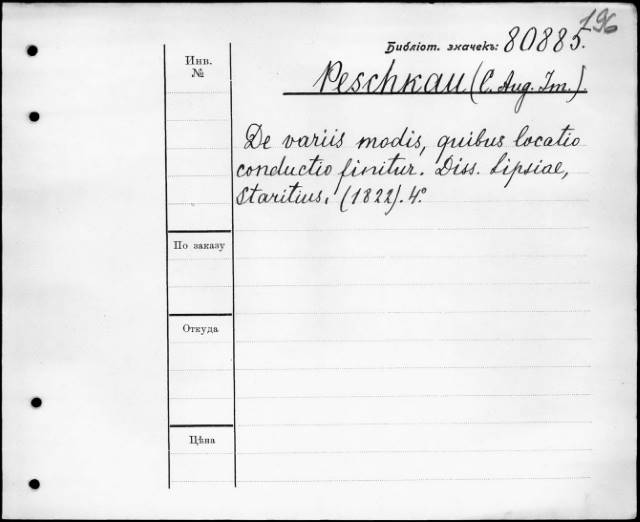 196
Библіот. значекъ: 80885.
Инв.
№
Peschkau (C. Aug. Im.).
De variis modis, quibus locatio
conductio finitur. Diss. Lipsiae,
Staritius, (1822). 4°.
По заказу
Откуда
Цѣна